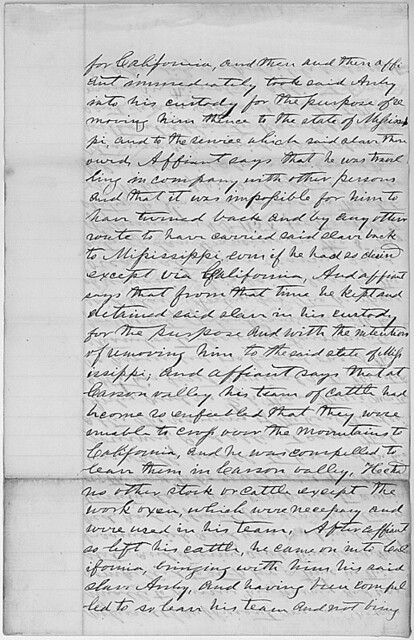 for California, and then and there affi-
ant immediately took said Andy
into his custody for the purpose of re
moving him thence to the state of Mississip
pi and to the service which said slave then
owed, Affiant says that he was travel
ling in company with other persons
and that it was impossible for him to
have turned back and by any other
route to have carried said slave back
to Mississippi, even if he had so desired
except via California, And affiant
says that from that time he kept and
detained said slave in his custody
for the purpose and with the intention
of removing him to the said state of Miss
issippi; and affiant says that at
Carson valley his team of cattle had
become so enfeebled that they were
unable to cross over the Mountains to
California, and he was compelled to
leave them in Carson valley, He had
no other stock or cattle except the
work oxen, which were necessary and
were used in his team, After affiant
so left his cattle, he came on into Cal
ifornia, bringing with him his said
slave Andy, and having been compel
led to so leave his team and not being